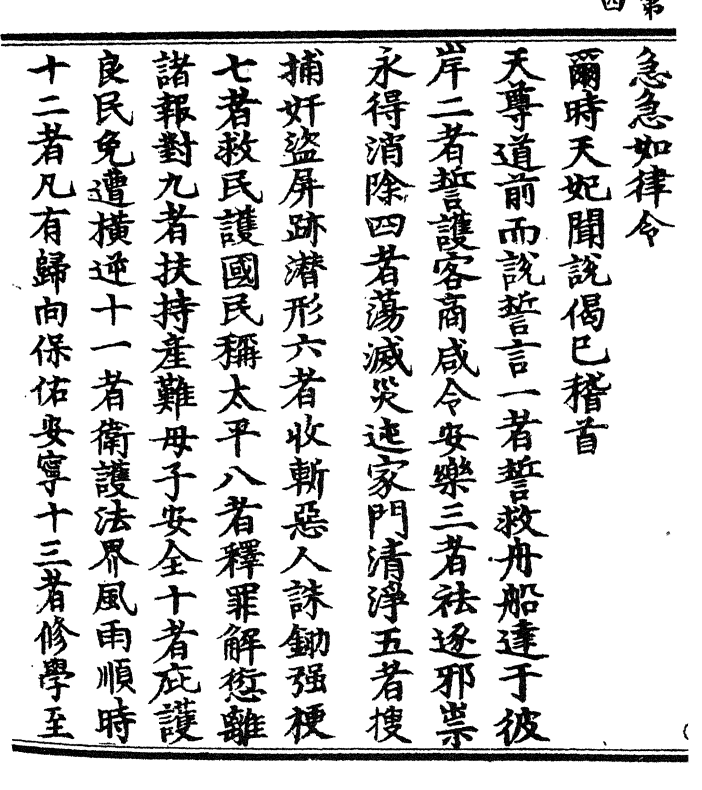 第
四
急急如律令
爾時天妃聞說偈已稽首
天尊道前而說誓言一者誓救舟船達于彼
岸二者誓護客商咸令安樂三者祛逐邪祟
永得消除四者蕩滅災迍家門清淨五者搜
捕奸盜屏跡潛形六者收斬惡人誅鋤强梗
七者救民護國民稱太平八者釋罪解愆離
諸報對九者扶持產難母子安全十者庇護
良民免遭橫逆十一者衛護法界風雨順時
十二者凡有歸向保佑安寧十三者修學至